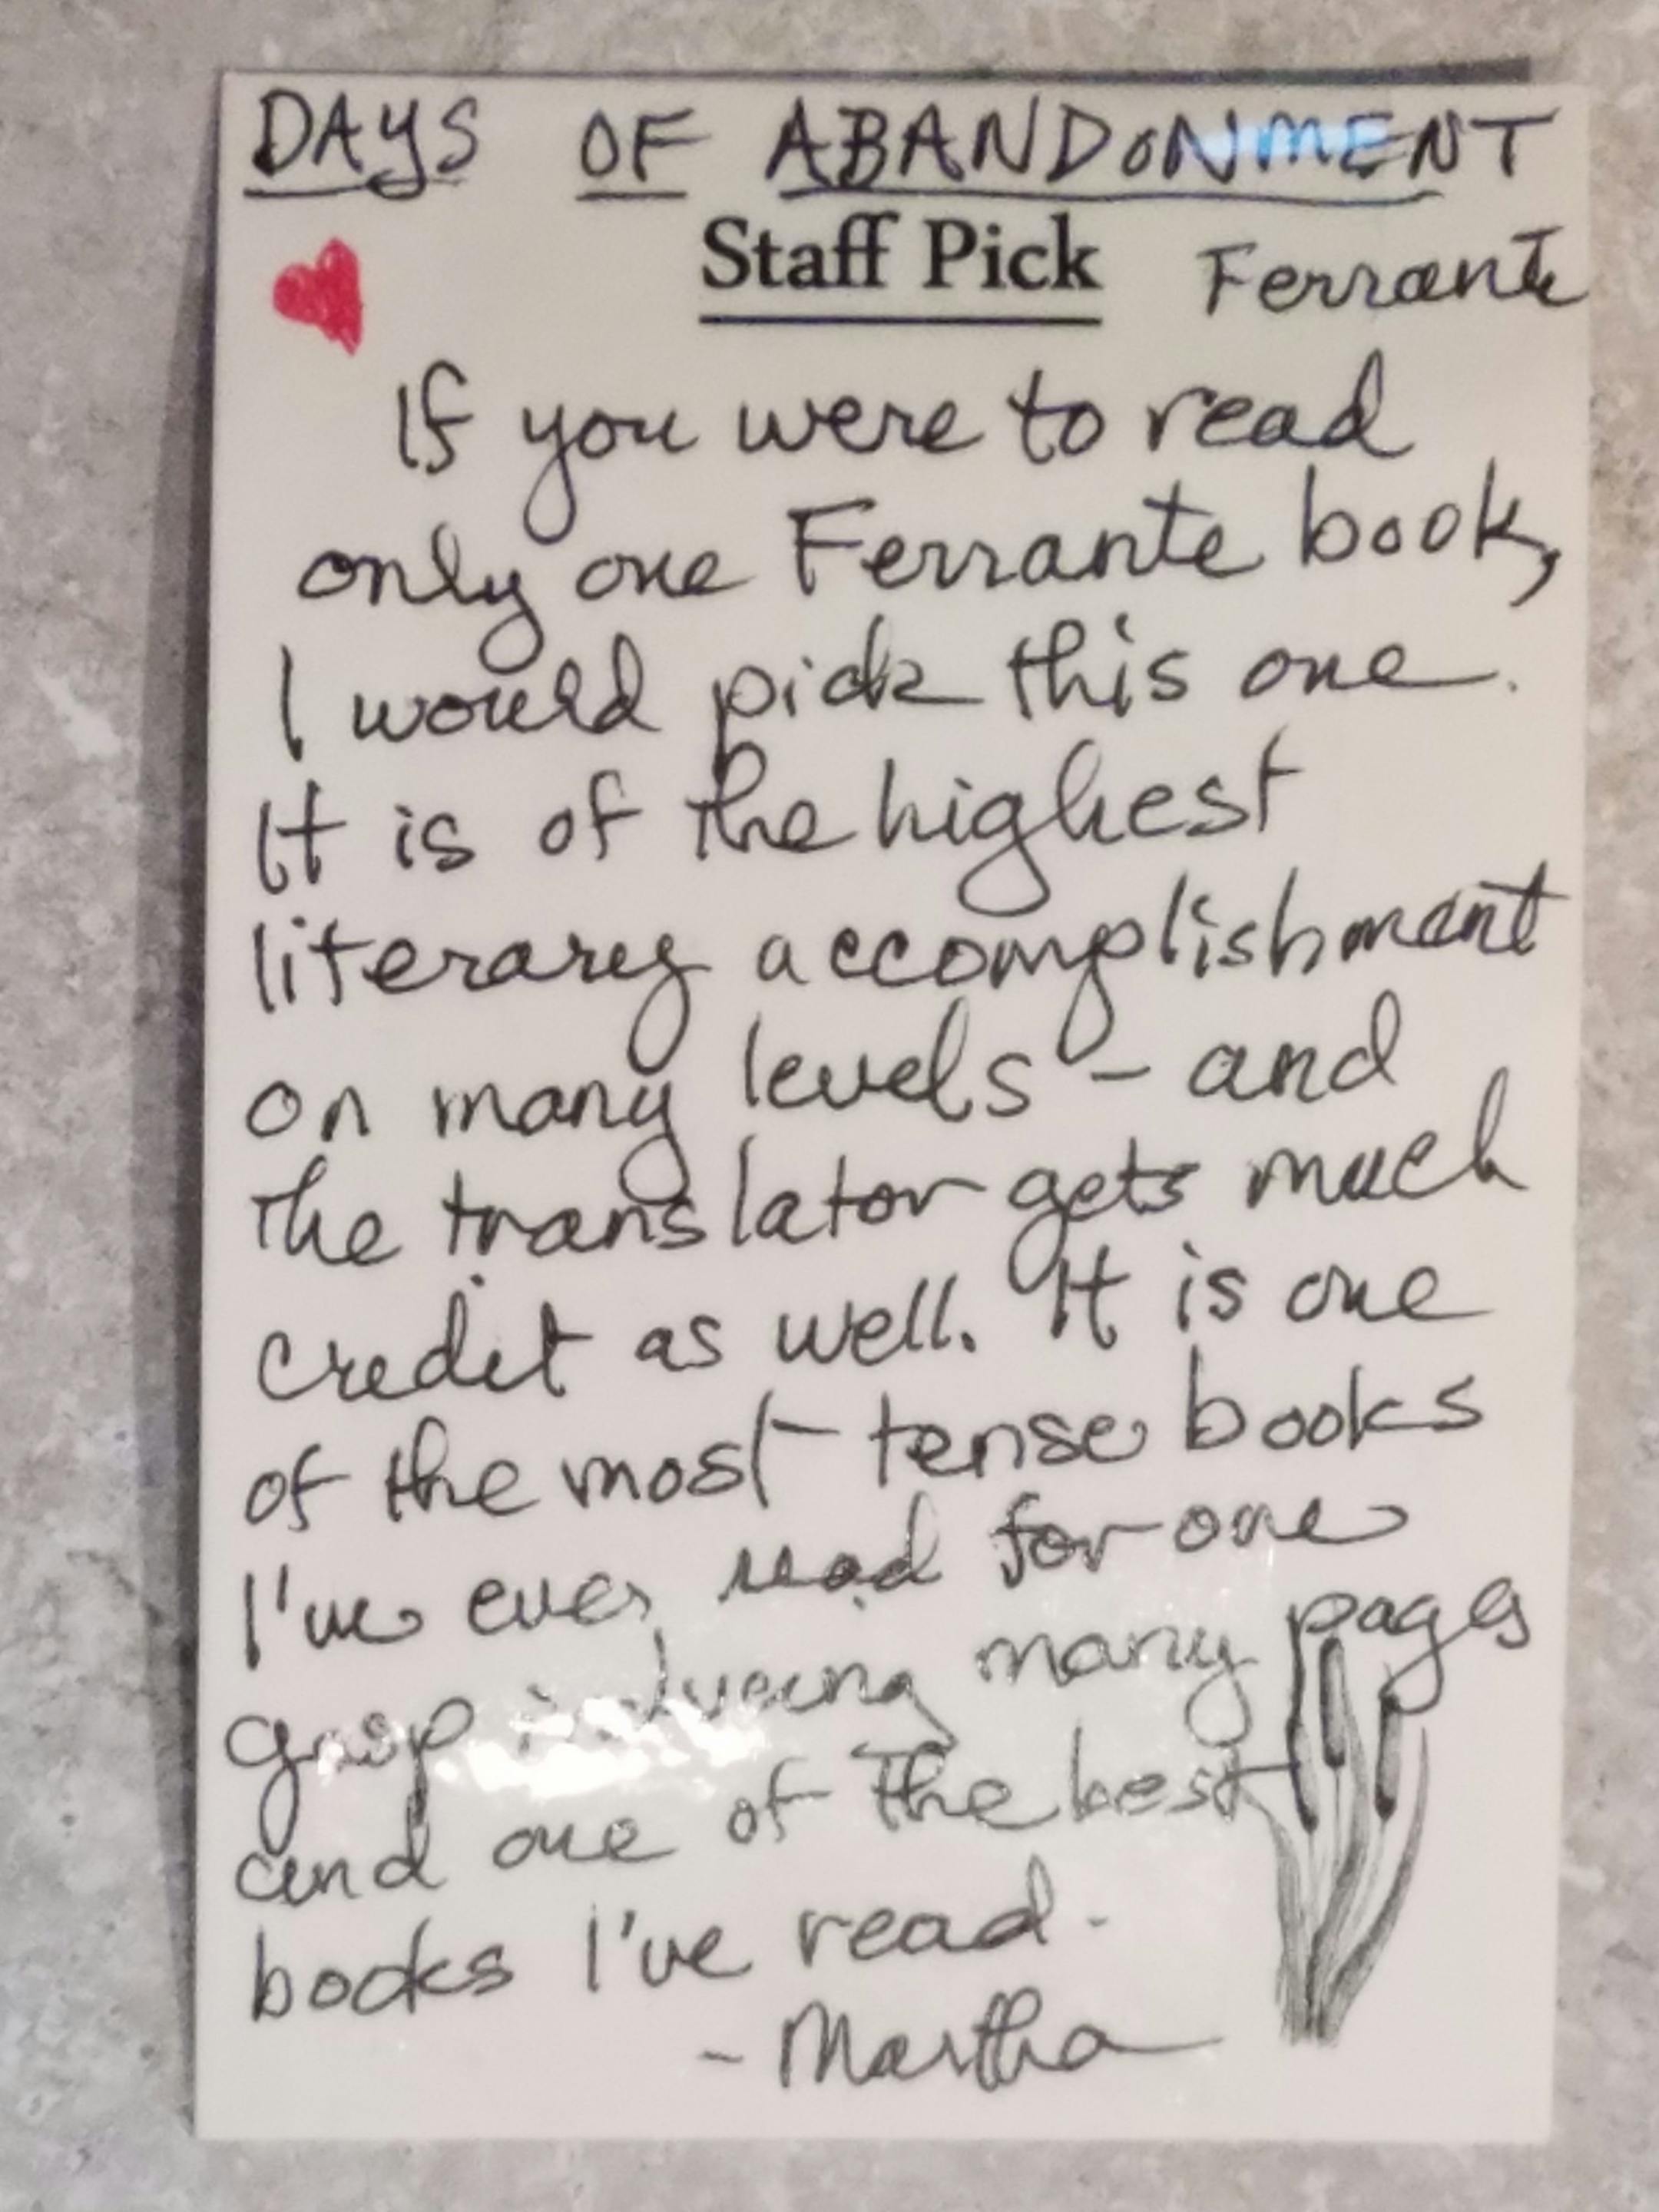 DAYS OF ABANDONMENT
Staff Pick Ferrante
If you were to read
only one Ferrante book,
I would pick this one.
It is of the highest
literary accomplishment
on many levels - and
the translator gets much
credit as well. It is one
of the most tense books
I've ever read for one
gasp involving many pages
and one of the best
books I've read.
- Martha